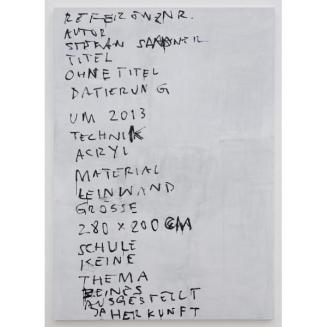 REFERENZNR.
AUTOR
STEFAN SANDNER
TITEL
OHNE TITEL
DATIERUNG
UM 2013
TECHNIK
ACRYL
MATERIAL
LEINWAND
GRÖSSE
280 X 200 CM
SCHULE
KEINE
THEMA
KEINES
AUSGESTELLT
JA HERKUNFT